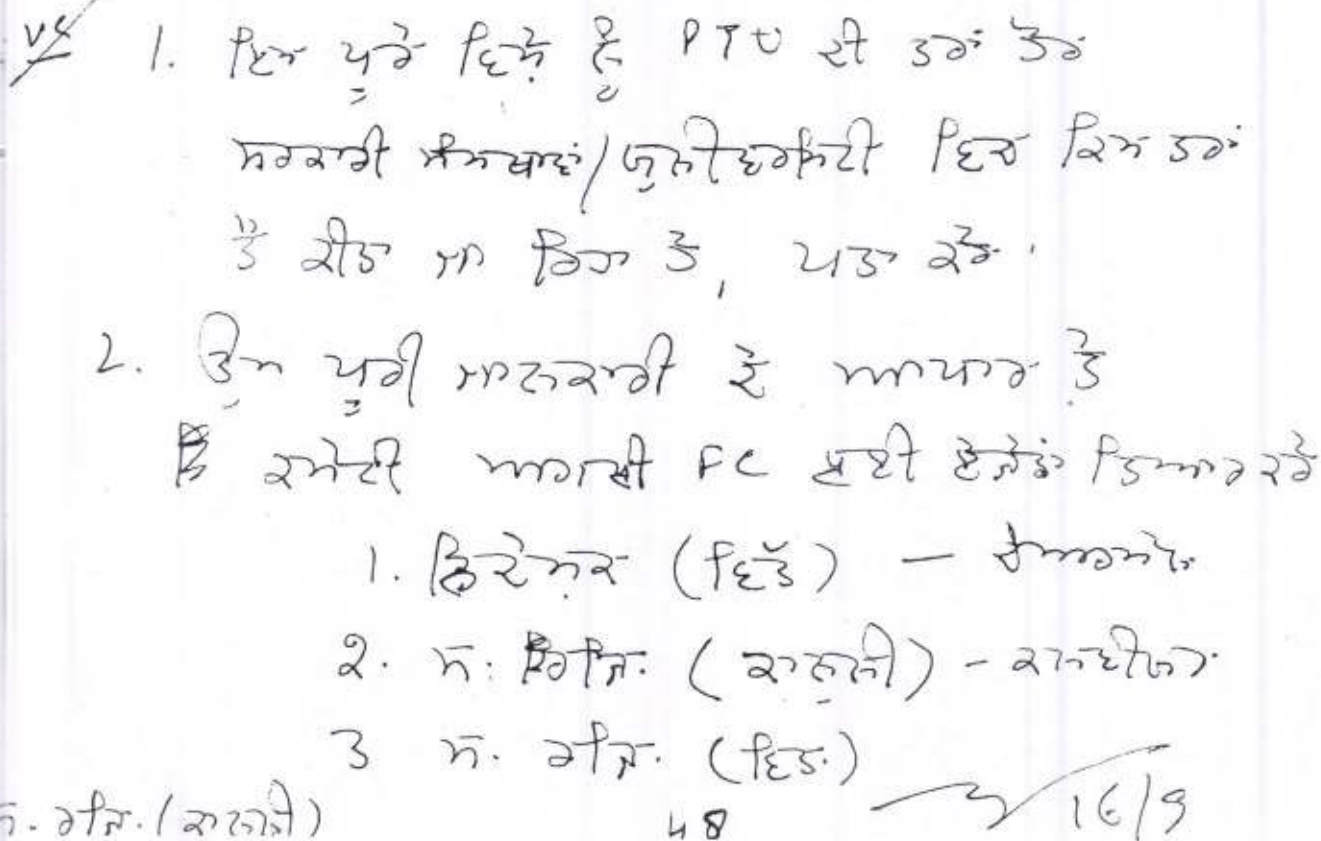 VC 1. ਇਸ ਪੂਰੇ ਵਿਸ਼ੇ ਨੂੰ PTU ਦੀ ਤਰਾਂ ਹੋਰ
ਸਰਕਾਰੀ ਸੰਸਥਾਵਾਂ/ਯੂਨੀਵਰਸਿਟੀ ਵਿਚ ਕਿਸ ਤਰਾਂ
ਕੀਤਾ ਜਾ ਰਿਹਾ ਹੈ, ਪਤਾ ਕਰੋ.
2. ਉਸ ਪੂਰੀ ਜਾਣਕਾਰੀ ਦੇ ਆਧਾਰ ਤੇ
ਕਮੇਟੀ ਅਗਲੀ FC ਲਈ ਏਜੰਡਾ ਤਿਆਰ ਕਰੇ
1. ਡਿਰੈਕਟਰ (ਵਿੱਤ) - ਚੇਅਰਮੈਨ
2. ਸ. ਰਜਿ. (ਕਾਨੂਨੀ) - ਕਨਵੀਨਰ
3 ਸ. ਰਜਿ. (ਵਿਤ.)
ਸ. ਰਜਿ. (ਕਾਨੂਨੀ) 48 16/9